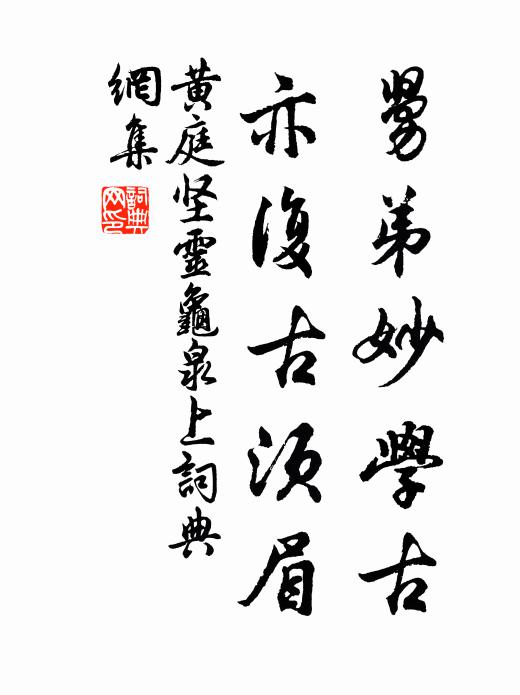 舅弟妙學古
亦復古須眉
黄庭坚靈龜泉上詞典
網集
詞典网印